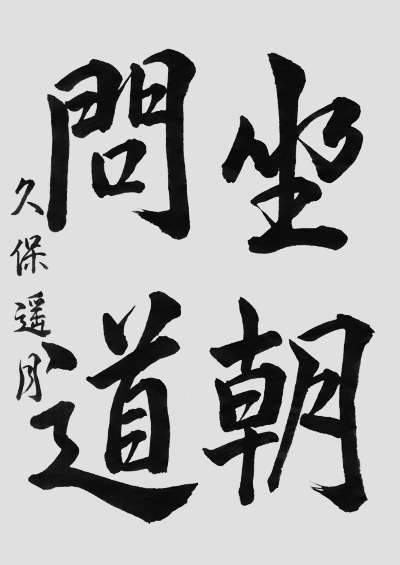 坐朝
問道
久保遥月